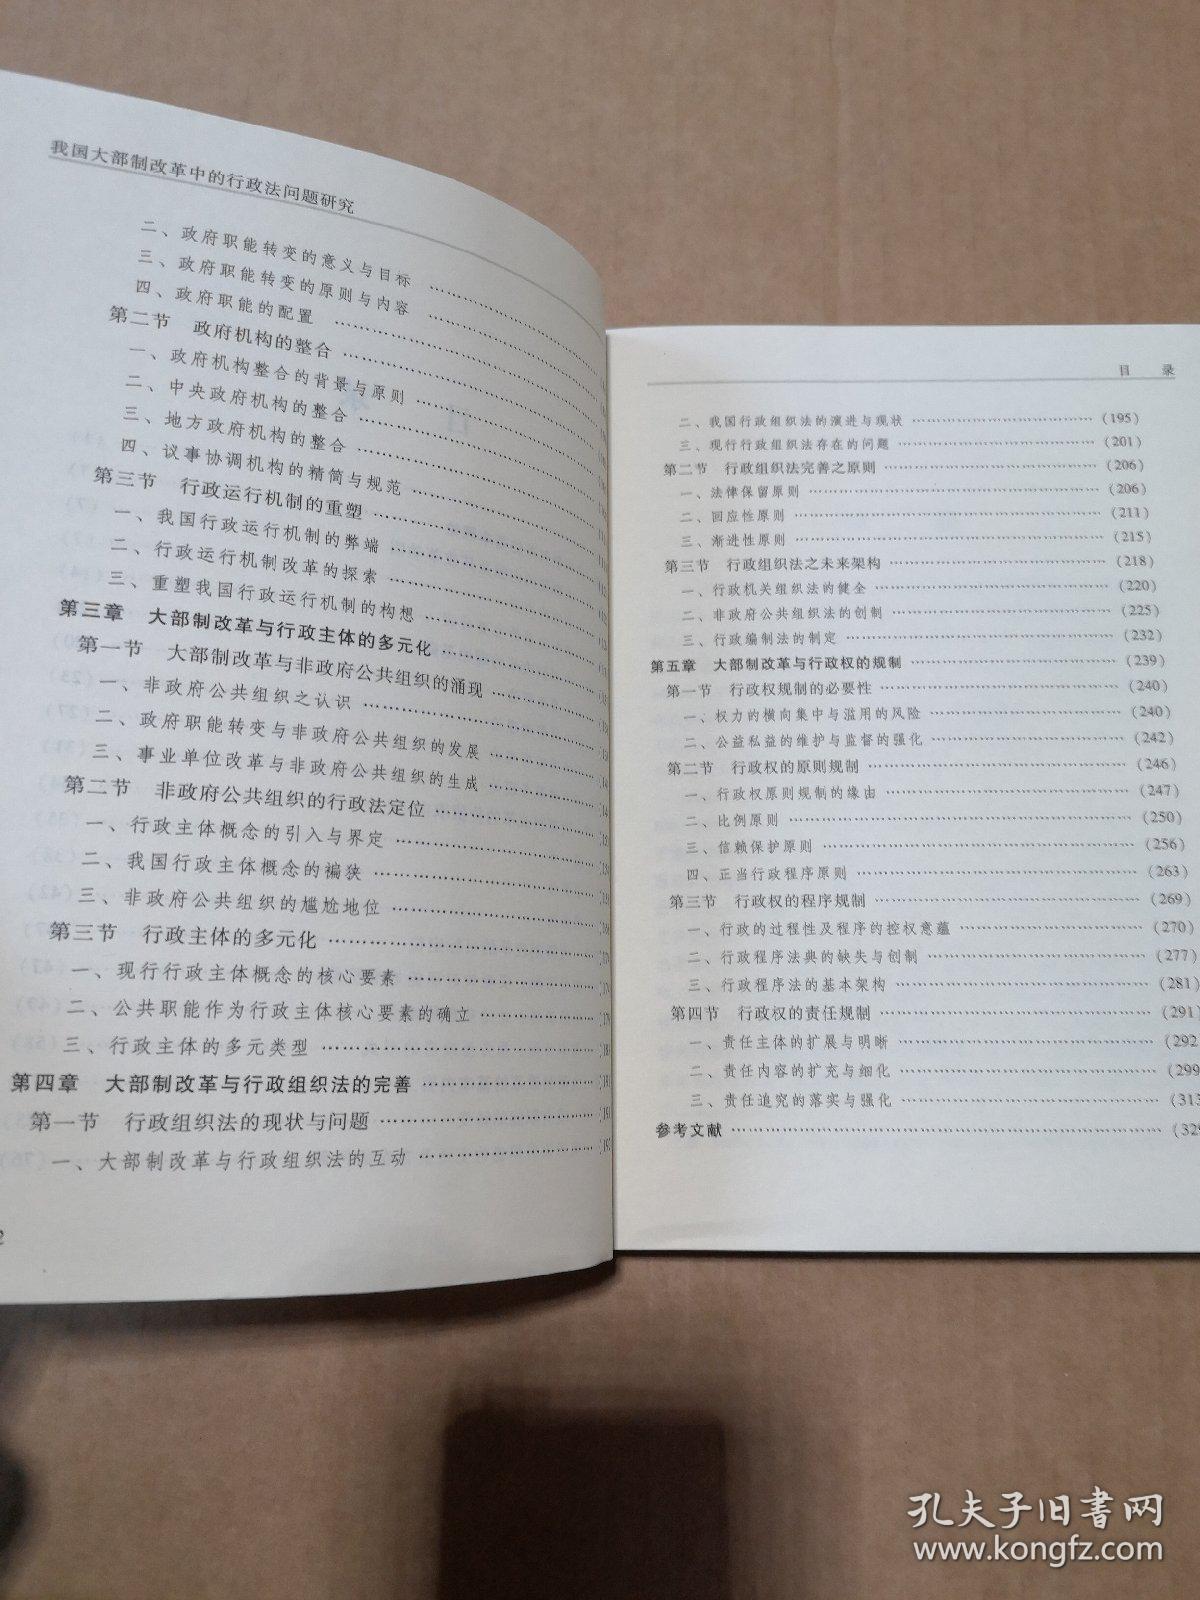 我国大部制改革中的行政法问题研究
二、政府职能转变的意义与目标
三、政府职能转变的原则与内容
四、政府职能的配置
第二节 政府机构的整合
一、政府机构整合的背景与原则
二、中央政府机构的整合
三、地方政府机构的整合
四、议事协调机构的精简与规范
第三节 行政运行机制的重塑
一、我国行政运行机制的弊端
二、行政运行机制改革的探索
三、重塑我国行政运行机制的构想
第三章 大部制改革与行政主体的多元化
第一节 大部制改革与非政府公共组织的涌现
一、非政府公共组织之认识
二、政府职能转变与非政府公共组织的发展
三、事业单位改革与非政府公共组织的生成
第二节 非政府公共组织的行政法定位
一、行政主体概念的引入与界定
二、我国行政主体概念的褊狭
三、非政府公共组织的尴尬地位
第三节 行政主体的多元化
一、现行行政主体概念的核心要素
二、公共职能作为行政主体核心要素的确立
三、行政主体的多元类型
第四章 大部制改革与行政组织法的完善
第一节 行政组织法的现状与问题
一、大部制改革与行政组织法的互动
2
目 录
二、我国行政组织法的演进与现状 (195)
三、现行行政组织法存在的问题 (201)
第二节 行政组织法完善之原则 (206)
一、法律保留原则 (206)
二、回应性原则 (211)
三、渐进性原则 (215)
第三节 行政组织法之未来架构 (218)
一、行政机关组织法的健全 (220)
二、非政府公共组织法的创制 (225)
三、行政编制法的制定 (232)
第五章 大部制改革与行政权的规制 (239)
第一节 行政权规制的必要性 (240)
一、权力的横向集中与滥用的风险 (240)
二、公益私益的维护与监督的强化 (242)
第二节 行政权的原则规制 (246)
一、行政权原则规制的缘由 (247)
二、比例原则 (250)
三、信赖保护原则 (256)
四、正当行政程序原则 (263)
第三节 行政权的程序规制 (269)
一、行政的过程性及程序的控权意蕴 (270)
二、行政程序法典的缺失与创制 (277)
三、行政程序法的基本架构 (281)
第四节 行政权的责任规制 (291)
一、责任主体的扩展与明晰 (292
二、责任内容的扩充与细化 (299
三、责任追究的落实与强化 (313
参考文献 (329
孔夫子旧书网
www.kongfz.com